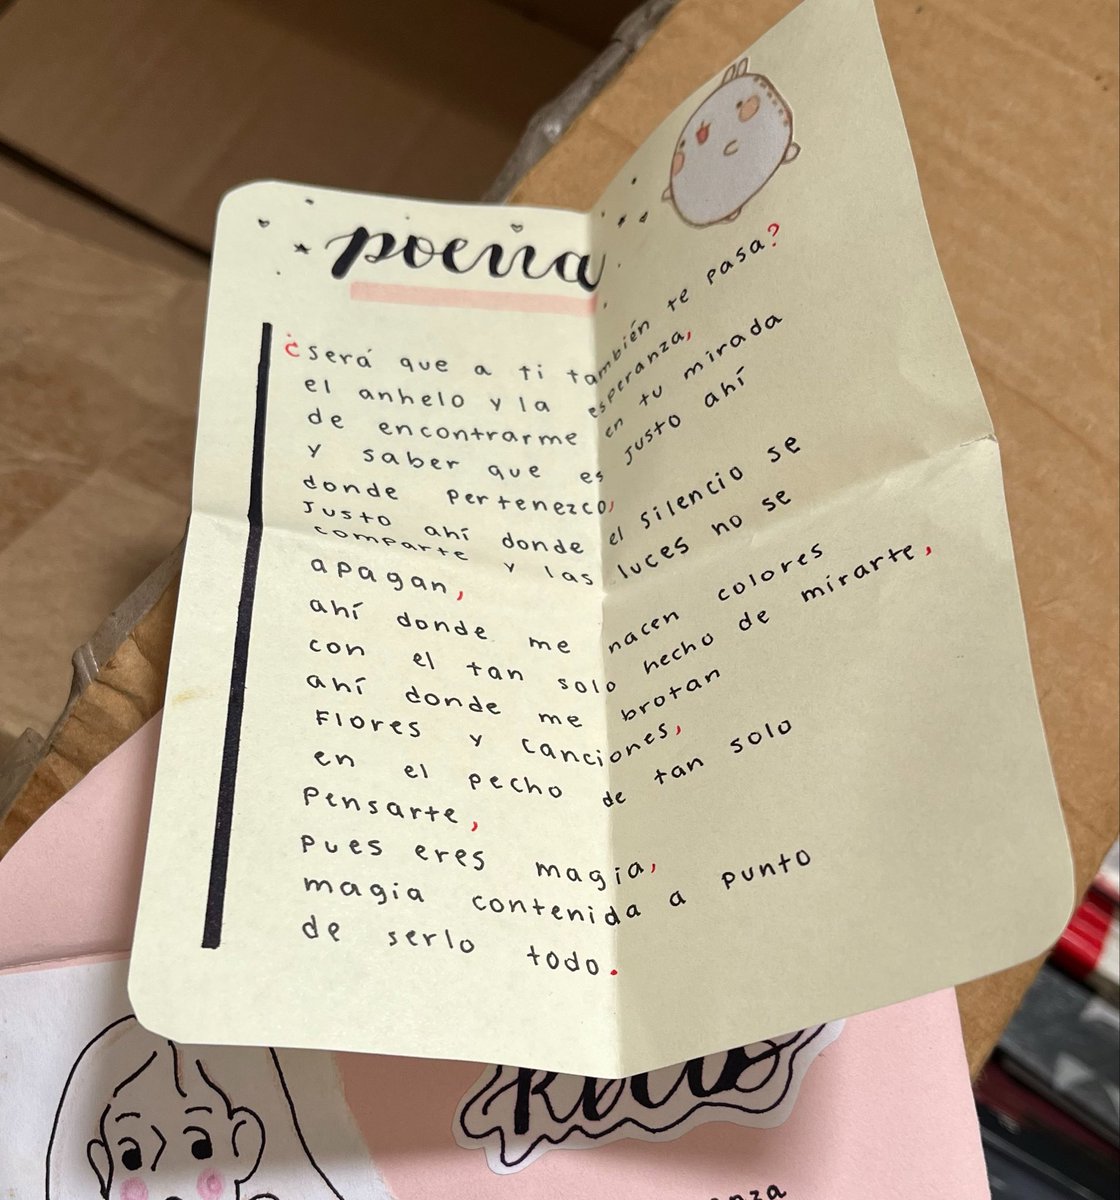 poema
¿será que a ti también te pasa?
el anhelo y la esperanza,
de encontrarme en tu mirada
y saber que es justo ahí
donde pertenezco,
justo ahí donde el silencio se
comparte y las luces no se
apagan,
ahí donde me nacen colores
con el tan solo hecho de mirarte,
ahí donde me brotan
flores y canciones,
en el pecho de tan solo
pensarte,
pues eres magia,
magia contenida a punto
de serlo todo.